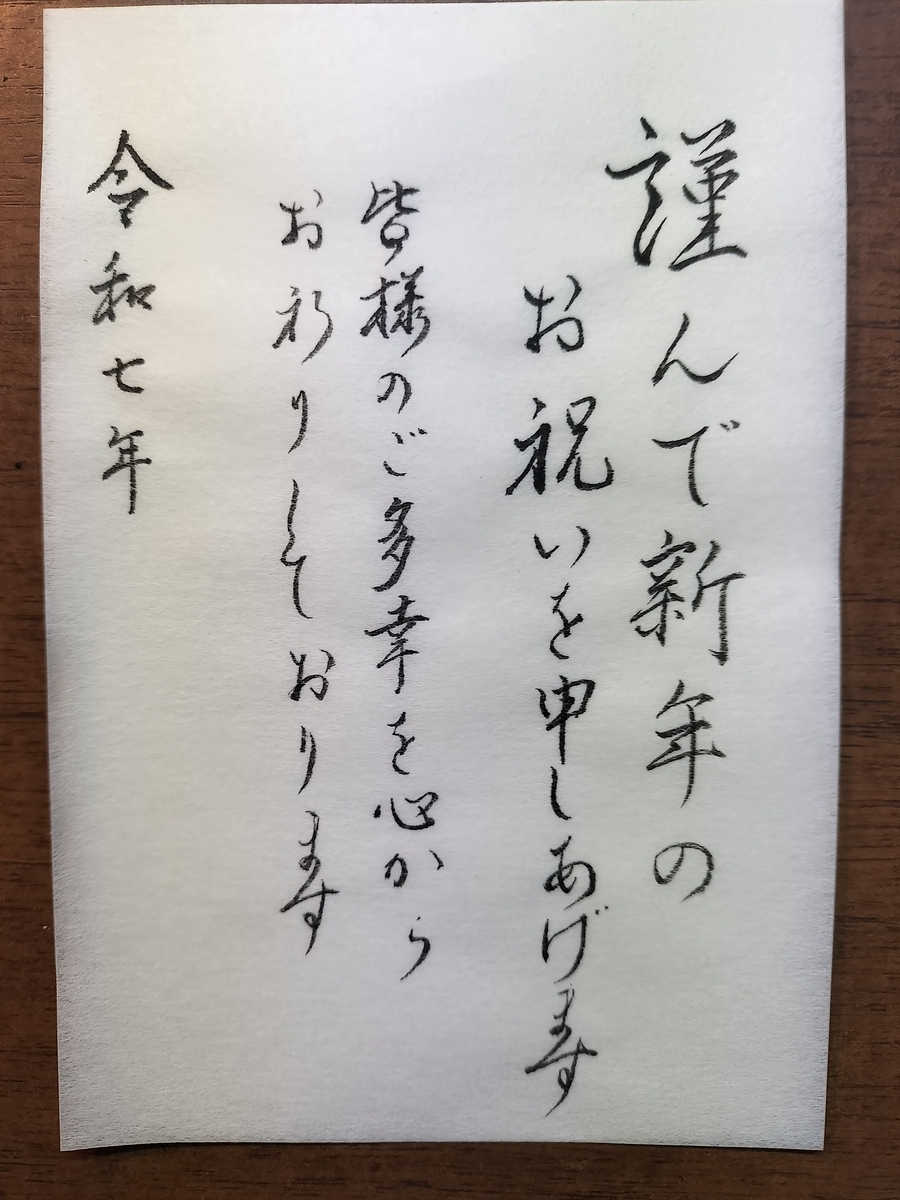 謹んで新年の
お祝いを申しあげます
皆様のご多幸を心から
お祈りしております
令和七年